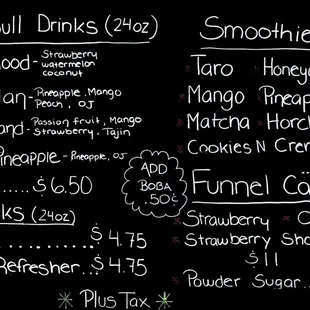 ull Drinks (24oz)
ood - Strawberry
watermelon
coconut
ian - Pineapple, Mango
Peach, OJ
and - Passion fruit, Mango
Strawberry, Tajin
Pineapple - Pineapple, OJ
...... $6.50
ADD
BOBA
.50¢
ks (24oz)
............ $4.75
Refresher... $4.75
Smoothie
Taro Honey
Mango Pineap
Matcha Horch
Cookies N Crem
Funnel Ca
Strawberry
Strawberry Sho
$11
Powder Sugar..
Plus Tax